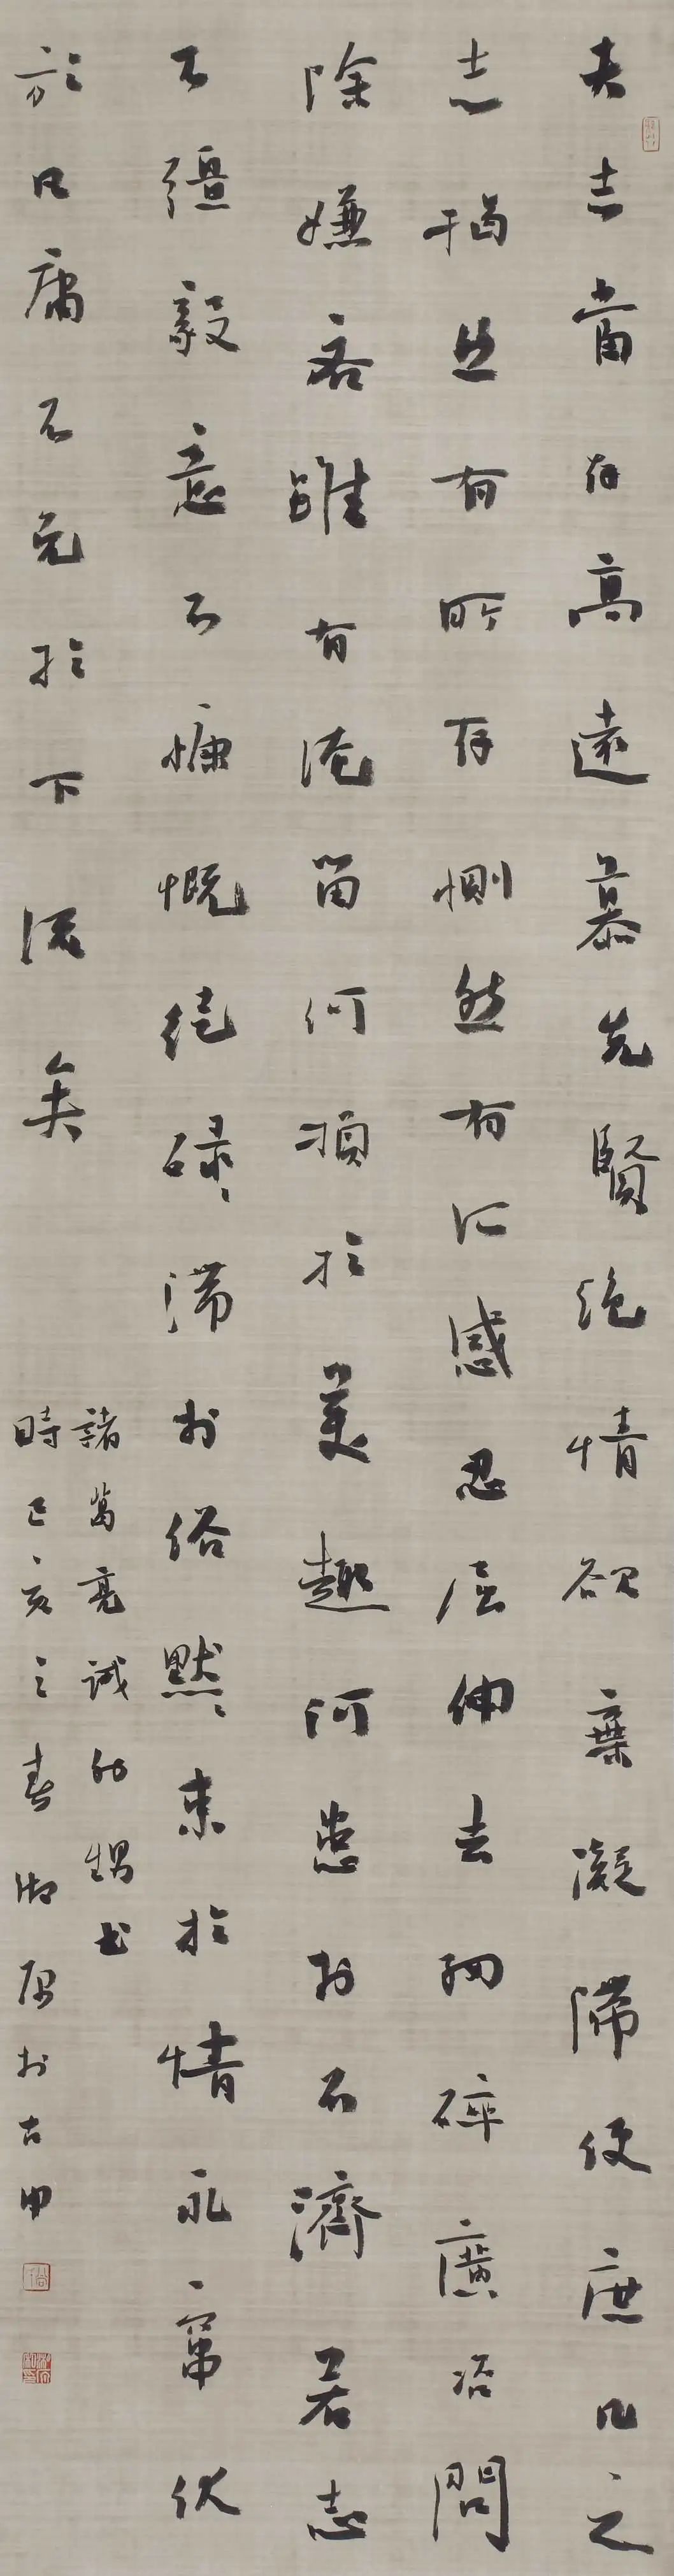 夫志當存高遠慕先賢絕情欲棄凝滯使庶几之
志揭然有所存惻然有所感忍屈伸去細碎廣咨問
除嫌吝雖有淹留何損於美趣何患於不濟若志
不彊毅意不慷慨徒碌碌滯於俗默默束於情永竄伏
於凡庸不免於下流矣
諸葛亮誡外甥書
時己亥之春湘 於古田